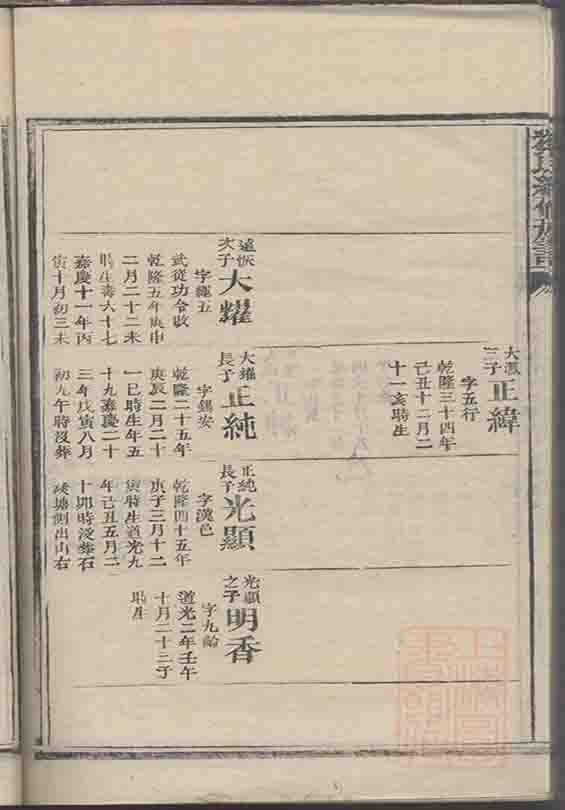 氏續修族譜
大
三子
正緯
字五行
乾隆三十四年
己丑十二月二
十一亥時生
遠恢
次子
大耀
字繩五
武從功令敢
乾隆五年庚申
二月二十二未
時生壽六十七
嘉慶十一年丙
寅十月初三未
大耀
長子
正純
字錫安
乾隆二十五年
庚辰二月二十
一巳時生年五
十九嘉慶二十
三年戊寅八月
初九午時沒葬
正純
長子
光顯
字漢邑
乾隆四十五年
庚子三月十二
寅時生道光九
年己丑五月二
十卯時沒葬石
塘側出山右
光顯
之子
明香
字九齡
道光二年壬午
十月二十三子
時生
上海圖書館藏